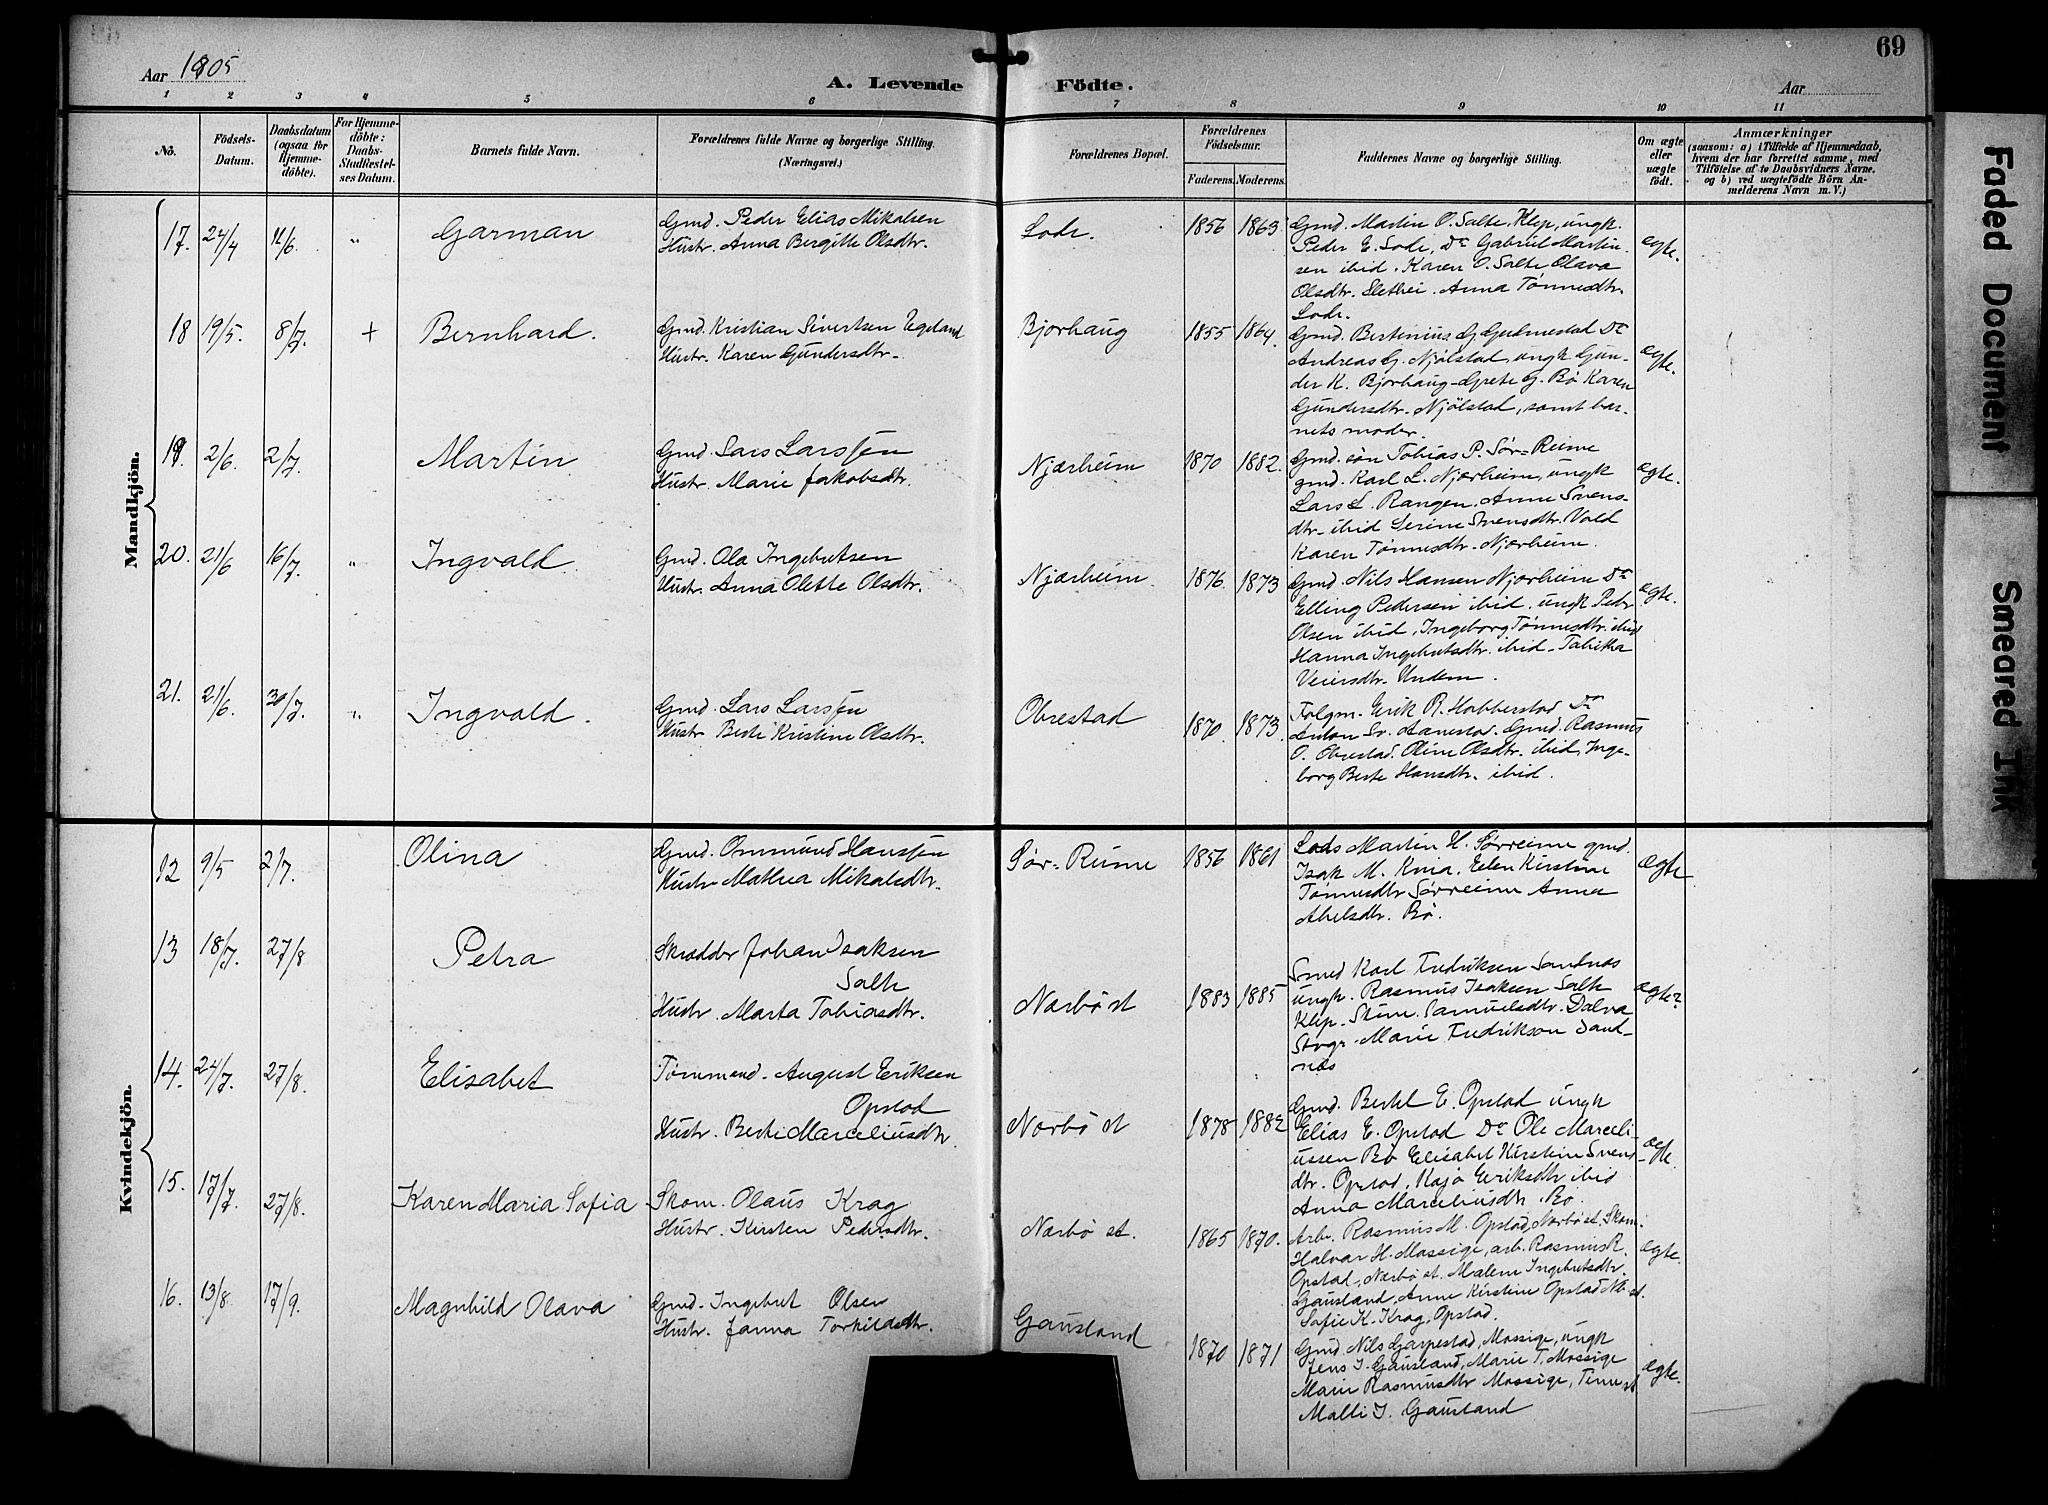 Aar 1905
A. Levende Födte.
69
Aar
1 2 3 4 5 6 7 8 9 10 11
No.
Födsels-Datum.
Daabsdatum (ogsaa for Hjemme-döbte).
For Hjemme-döbte: Daabs-Stadfæstel-ses Datum.
Barnets fulde Navn.
Forældrenes fulde Navne og borgerlige Stilling. (Næringsvei.)
Forældrenes Bopæl.
Forældrenes Födselsaar.
Faderens. Moderens.
Faddernes Navne og borgerlige Stilling.
Om ægte eller uægte födt.
Anmærkninger
(saasom: a) i Tilfælde af Hjemmedaab,
hvem der har forrettet samme, med
Tilföielse af to Daabsvidners Navne,
og b) ved uægtefödte Börn An-
melderens Navn m. V.)
Mandkjön.
17. 24/4 11/6 " Garman
Gmd. Peder Elias Mikalsen
Hustr. Anna Bergitte Olsdtr.
Lode. 1856 1863
Gmd. Martin O. Salte, Klep, ungk.
Peder E. Lode, Do Gabriel Martin-
sen ibid. Karen O. Salte Olava
Olsdtr. Slethei. Anna Tønnesdtr.
Lode.
ægte.
18 19/5. 8/7. + Bernhard.
Gmd. Kristian Sivertsen Egeland
Hustr. Karen Gundersdtr.
Bjorhaug 1855 1864.
Gmd. Bertinius G. Gudmestad Do
Andreas G. Njølstad, ungk Gun-
der K. Bjorhaug Grete G. Bø Karen
Gundersdtr. Njølstad, samt bar-
nets moder.
ægte.
19. 2/6. 2/7. Martin
Gmd. Lars Larssen
Hustr. Marie Jakobsdtr.
Njærheim 1870 1882.
Gmd. søn Tobias P. Sør-Reime
gmd. Karl L. Njærheim, ungk
Lars L. Rangen, Anne Svens-
dtr. ibid Serine Svensdtr. Vold
Karen Tønnesdtr. Njærheim.
ægte.
20. 21/6 16/7. " Ingvald.
Gmd. Ola Ingebretsen
Hustr. Anna Olette Olsdtr.
Njærheim. 1876. 1873
Gmd. Nils Hansen Njærheim Do
Elling Pedersen ibid. ungk Peder
Olsen ibid, Ingeborg Tønnesdtr. ibid
Hanna Ingebretsdtr. ibid Tabitha
Veiersdtr. Undem.
ægte.
21. 21/6. 30/7. " Ingvald.
Gmd. Lars Larssen
Hustr. Berte Kristine Olsdtr.
Obrestad 1870. 1873.
Folgm. Erik R. Hobberstad Do
Anton Sv. Aanestad. Gmd. Rasmus
O. Obrestad. Oline Olsdtr. ibid, Inge-
borg Berte Hansdtr. ibid.
Kvindekjön.
12 9/5 2/7. Olina
Gmd. Ommund Hanssen
Hustr Mathea Mikalsdtr.
Sør-Reime 1856 1861
Lods Martin H. Sørreime gmd.
Isak M. Kvia, Elen Kirstine
Tønnesdtr Sørreime Anna
Abelsdtr. Bø.
ægte
13 18/7. 27/8 Petra
Skrædder Johan Isaksen
Salte
Hustr. Marta Tobiasdtr.
Nærbø st 1883 1885
Smed Karl Fredriksen Sandnes
ungk. Rasmus Isaksen Salte
Klep. Stine Samuelsdtr. Dalva
Marie Fredrikson Sand-
nes
ægte?
14. 24/7. 27/8. Elisabet
Tømmend. August Eriksen
Opstad
Hustr. Berte Marceliusdtr.
Nærbø st 1878 1882
Gmd. Bertel E. Opstad ungk
Elias E. Opstad Do Ole Marceli-
ussen Bø Elisabet Kirstine Svens-
dtr. Opstad, Kaja Eriksdtr ibid
Anna Marceliusdtr. Bø.
ægte.
15. 17/7. 27/8. Karen Maria Sofia
Skom. Olaus Krag
Hustr. Kirsten Pedersdtr.
Nærbø st. 1865 1870.
Arb. Rasmus M. Opstad, Nærbø st. Skom.
Halvar H. Mossige, arb. Rasmus R.
Opstad, Nærbø st. Malene Ingebretsdtr.
Gausland, Anne Kirstine Opstad N.b. st.
Sofie K. Krag, Opstad.
ægte.
16. 13/8 17/9. Magnhild Olava
Gmd. Ingebret Olsen
Hustr. Janna Torkildsdtr.
Gausland 1870 1871
Gmd Nils Garpestad, Mossige, ungk
Jens I. Gausland, Marie T. Mossige
Marie Rasmusdtr Mossige, Time st
Malli I. Gausland
ægte.
Faded Document
Smeared Ink